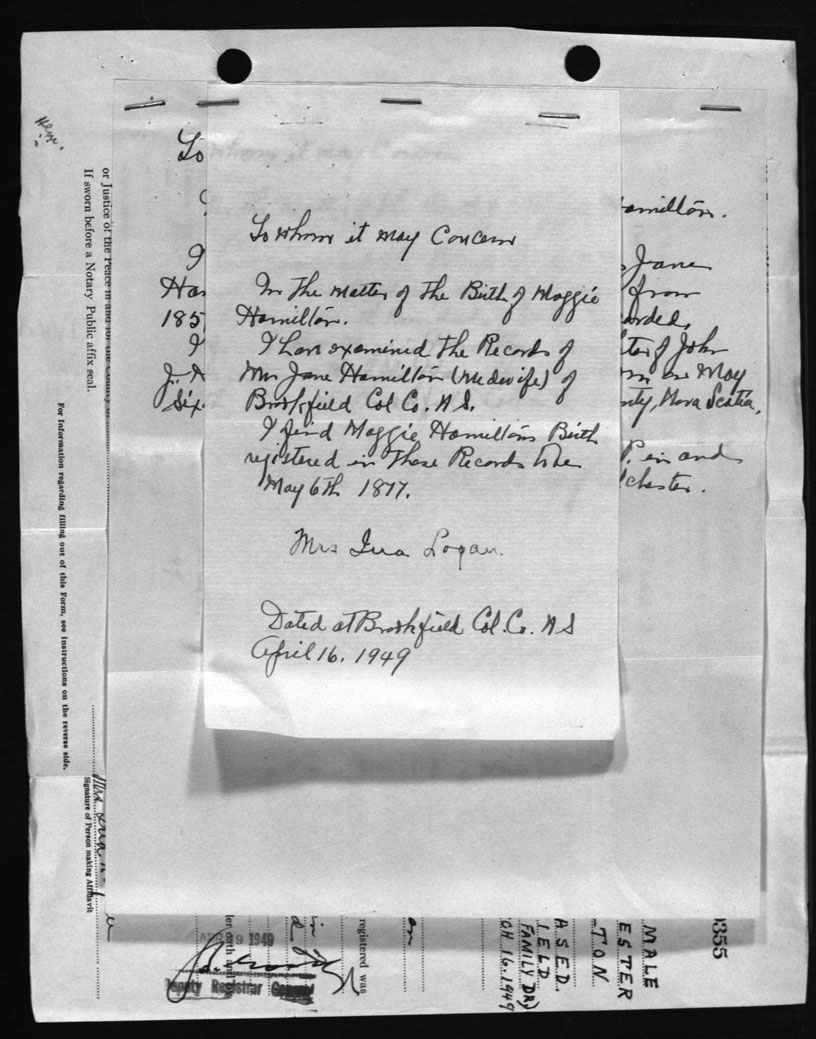 Here.
or Justice of the Peace in and for the County of
If sworn before a Notary Public affix seal.
For Information regarding filling out of this Form, see Instructions on the reverse side.
Signature of Person making Affidavit
To
amilton.
I
Jane
Ha
from
185
orded,
I
ter of John
J.
on May
Six
nty, Nova Scotia,
P. in and
lchester.
To whom it may Concern
In the matter of the Birth of Maggie
Hamilton.
I have examined the Records of
Mrs Jane Hamilton (Midwife) of
Brookfield Col Co. N.S.
I find Maggie Hamiltons Birth
registered in these Records to be
May 6th 1877.
Mrs Ina Logan.
Dated at Brookfield Col. Co. N S
April 16. 1949
9 1949
Deputy Registrar General
registered was
on
OH 16.1949
FAMILY DR)
IELD
ASED.
TON
ESTER
MALE
0355